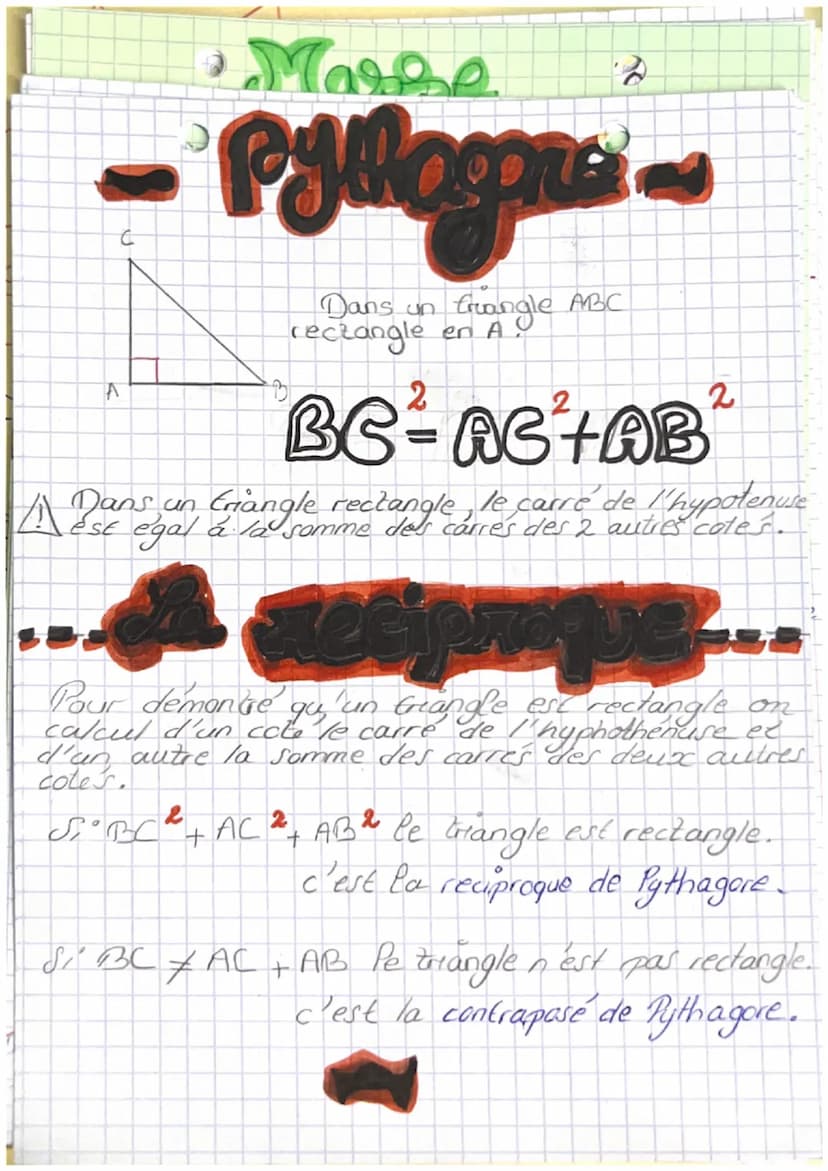 Pythagore
C
Dans un triangle ABC
rectangle en A :
A
B
BC²= AC²+AB²
! Dans un triangle rectangle, le carré de l'hypotenuse
est egal à la somme des carrés des 2 autres cotés.
La reciproque
Pour démontré qu'un triangle est rectangle on
calcul d'un coté le carré de l'hyphothénuse et
d'un autre la somme des carrés des deux autres
cotés.
Si BC² + AC² + AB² le triangle est rectangle.
c'est la reciproque de Pythagore.
Si BC ≠ AC + AB le triangle n'est pas rectangle.
c'est la contraposé de Pythagore.